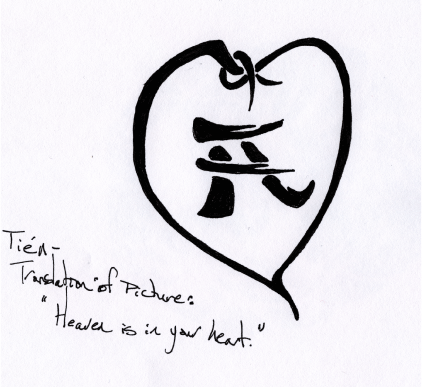 Tién-
Translation of Picture:
"Heaven is in your heart."